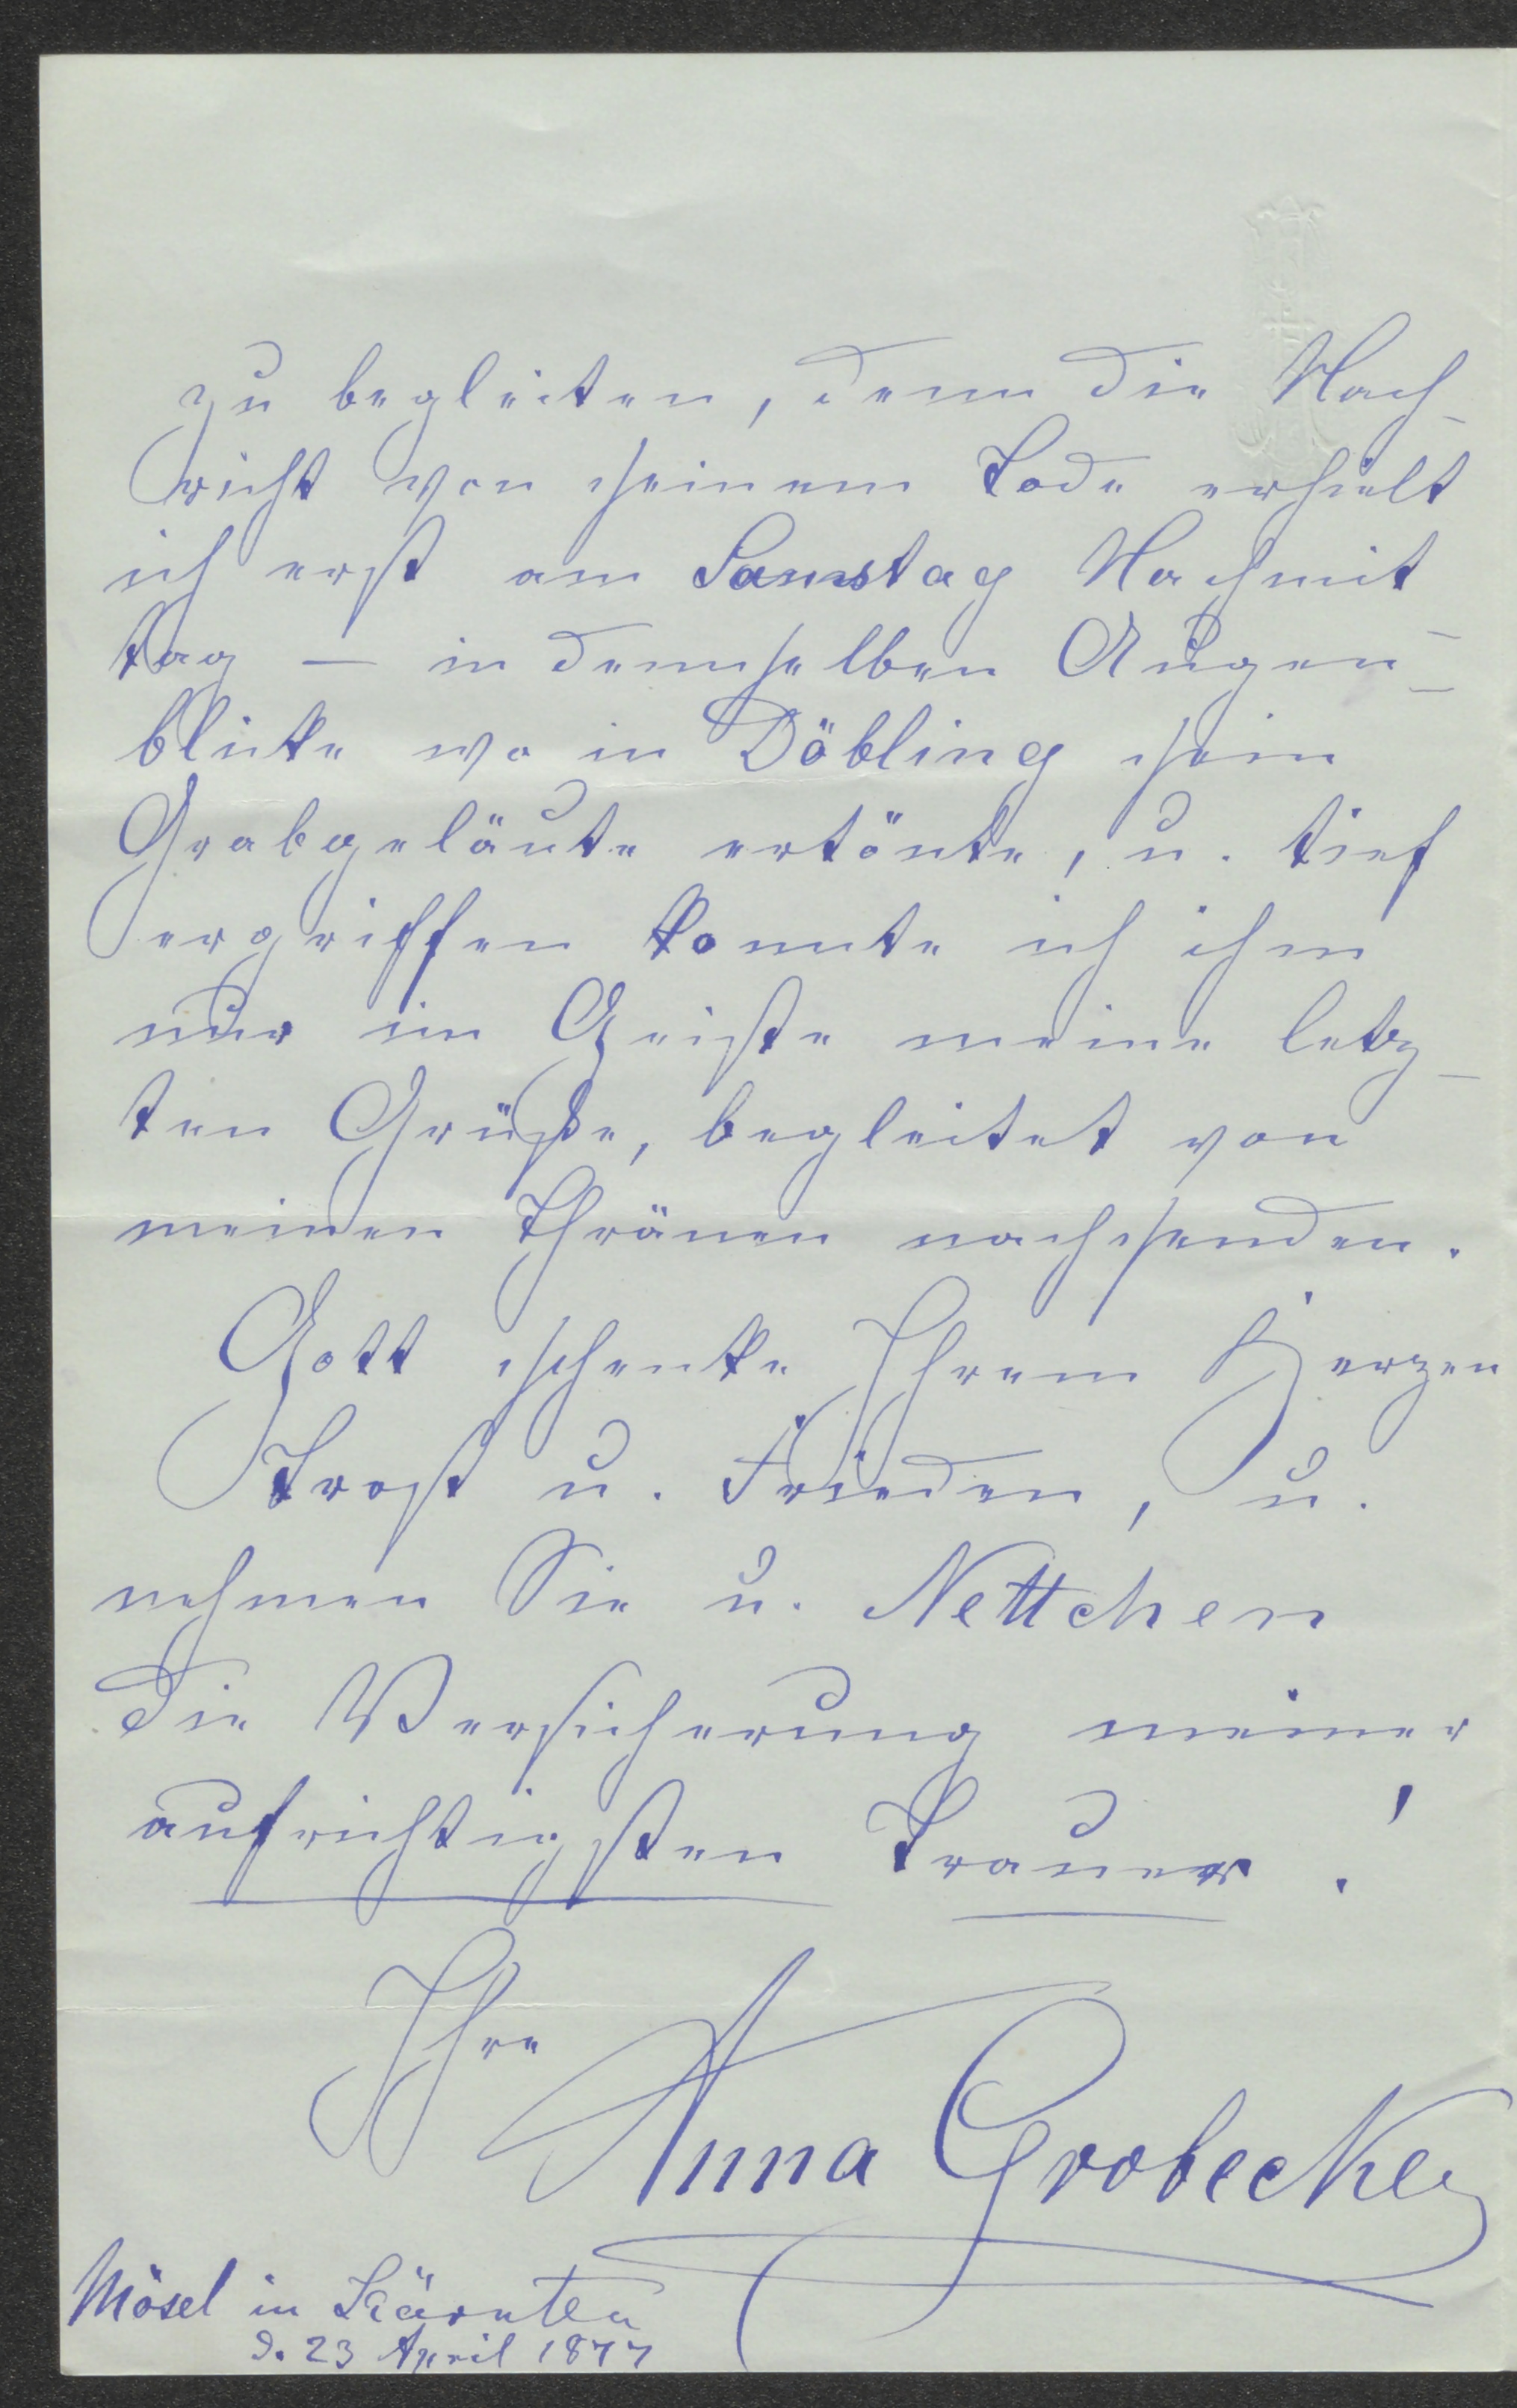 zu begleiten, denn die Nach-
richt von seinem Tode erhielt
ich erst am Samstag Nachmit
tag — in demselben Augen-
blicke wo in Döbling sein
Grabgeläute ertönte, u. tief
ergriffen konnte ich ihm
nur im Geiste meine letz-
ten Grüße, begleitet von
meinen Thränen nachsenden.
Gott schenke Ihrem Herzen
Trost u. Frieden, u.
nehmen Sie u. Nettchen
die Versicherung meiner
aufrichtigsten Trauer!
Ihre
Anna Grobecker
Mösel in Kärnten
d. 23 April 1877